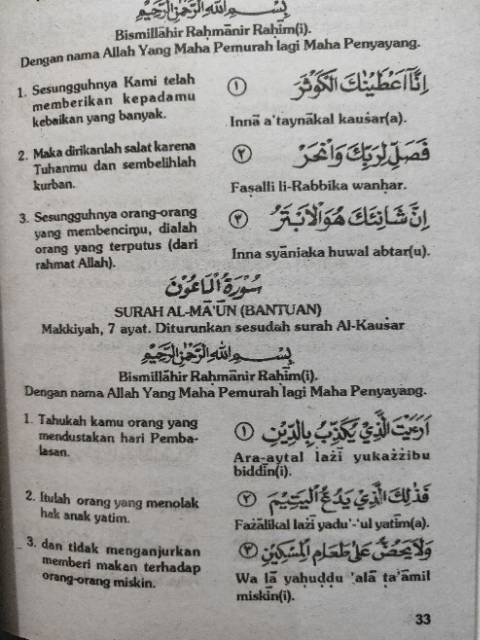 بِسْمِ اللَّهِ الرَّحْمَٰنِ الرَّحِيمِ
Bismillāhir Raḥmānir Raḥīm(i).
Dengan nama Allah Yang Maha Pemurah lagi Maha Penyayang.
1. Sesungguhnya Kami telah
memberikan kepadamu
kebaikan yang banyak.
١ إِنَّا أَعْطَيْنٰكَ الْكَوْثَرَ
Innā a'taynākal kauṡar(a).
2. Maka dirikanlah salat karena
Tuhanmu dan sembelihlah
kurban.
٢ فَصَلِّ لِرَبِّكَ وَانْحَرْ
Faṣalli li-Rabbika wanḥar.
3. Sesungguhnya orang-orang
yang membencimu, dialah
orang yang terputus (dari
rahmat Allah).
٣ إِنَّ شَانِئَكَ هُوَ الْأَبْتَرُ
Inna syāniaka huwal abtar(u).
سُوْرَةُ الْمَاعُوْنَ
SURAH AL-MĀ'ŪN (BANTUAN)
Makkiyah, 7 ayat. Diturunkan sesudah surah Al-Kauṡar
بِسْمِ اللَّهِ الرَّحْمَٰنِ الرَّحِيمِ
Bismillāhir Raḥmānir Raḥīm(i).
Dengan nama Allah Yang Maha Pemurah lagi Maha Penyayang.
1. Tahukah kamu orang yang
mendustakan hari Pemba-
lasan.
١ اَرَءَيْتَ الَّذِيْ يُكَذِّبُ بِالدِّيْنِ
Ara-aytal lażī yukażżibu
biddīn(i).
2. Itulah orang yang menolak
hak anak yatim.
٢ فَذٰلِكَ الَّذِيْ يَدُعُّ الْيَتِيْمَ
Fażālikal lażī yadu'-'ul yatīm(a).
3. dan tidak menganjurkan
memberi makan terhadap
orang-orang miskin.
٣ وَلَا يَحُضُّ عَلٰى طَعَامِ الْمِسْكِيْنِ
Wa lā yaḥuḍḍu 'alā ṭa'āmil
miskīn(i).
33